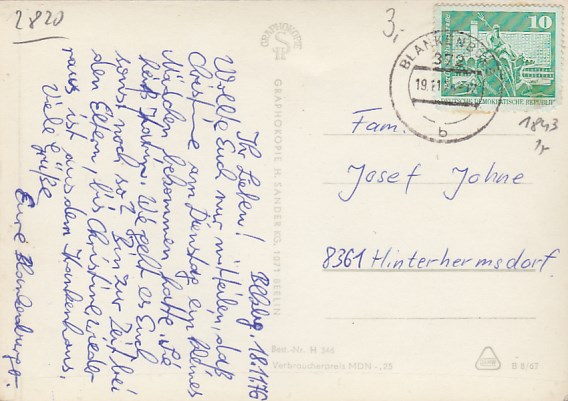 2820
3,
Blkbg. 18.11.76
Ihr Lieben!
Wollte Euch nur mitteilen, daß
Christine am Dienstag ein kleines
Mädchen bekommen hatte. Sie
heißt Katrin. Wie geht es Euch
sonst noch so? Bin zur Zeit bei
den Eltern, bis Christine wieder
raus ist aus dem Krankenhaus.
Viele Grüße
Eure Blankenburger.
GRAPHOKOPIE
GRAPHOKOPIE H. SANDER KG, 1071 BERLIN
Best.-Nr. H 346
Verbraucherpreis MDN -,05
BLANKENBURG
372
19.11.
b
10
DEUTSCHE DEMOKRATISCHE REPUBLIK
1843
Fam.
Josef Johne
8361 Hinterhermsdorf
B 8/67